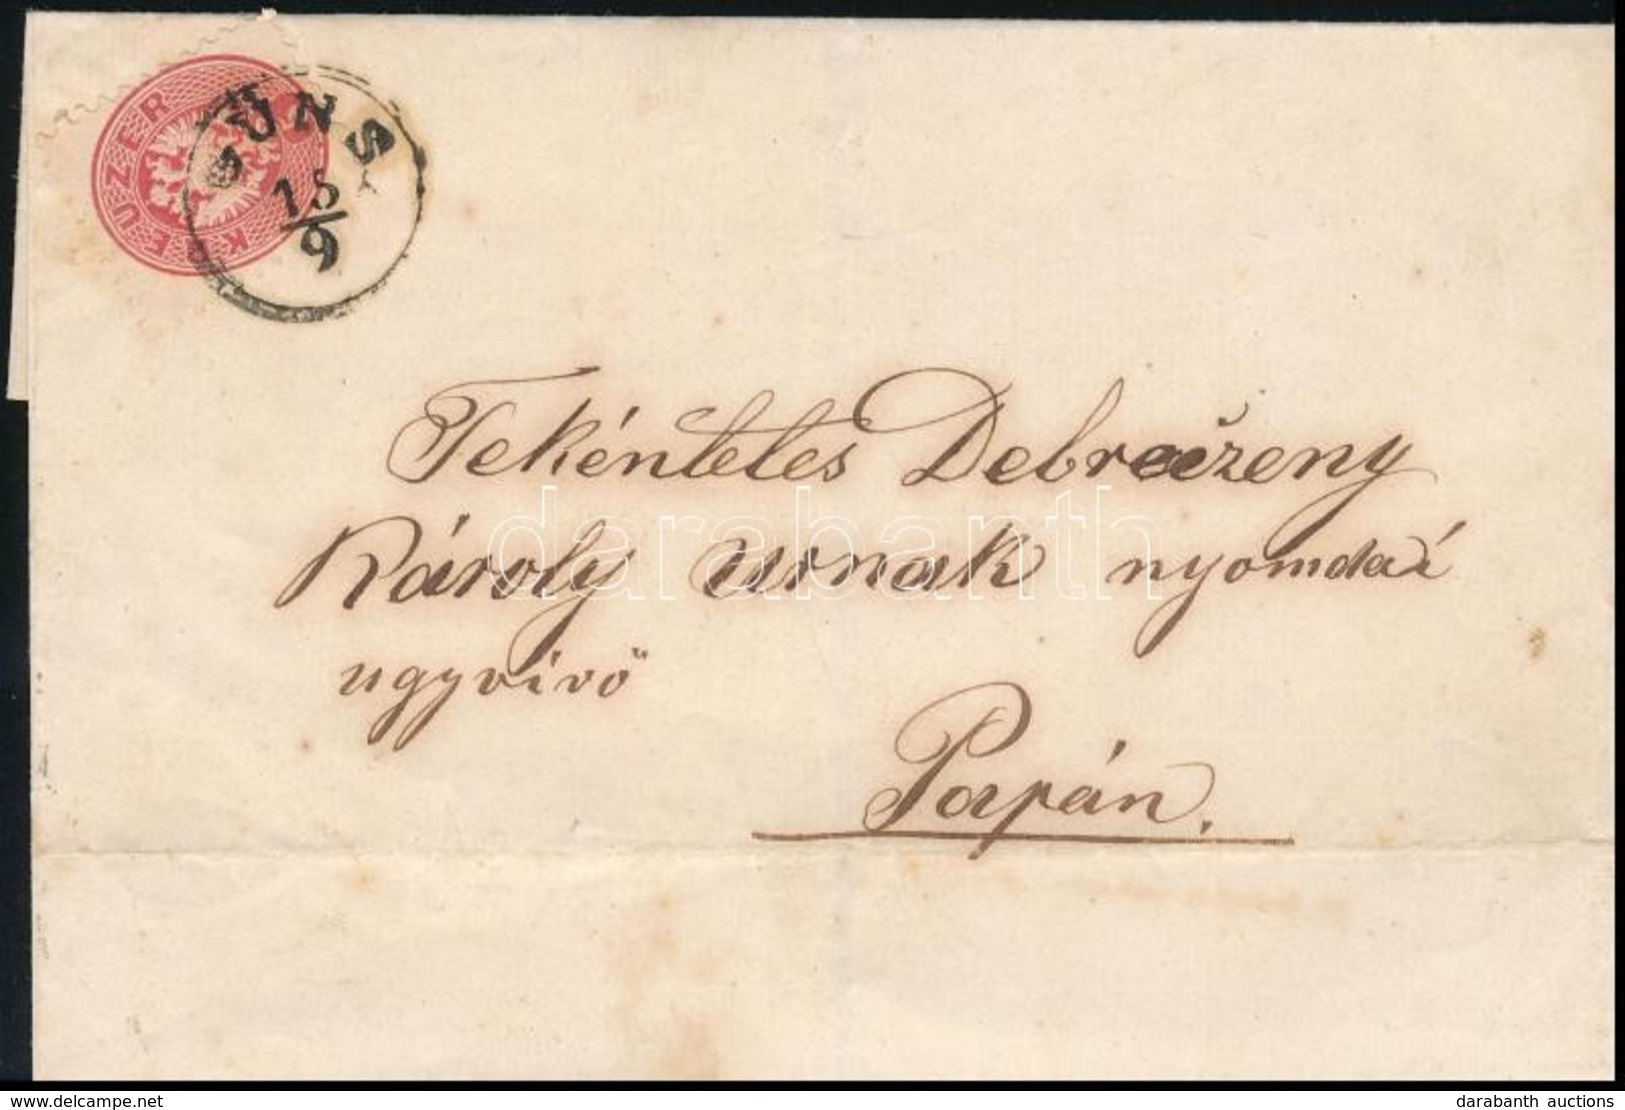 KREUZER
GÜNS
15/9
Tekéntetes Debreczeny
Károly urnak nyomdai
ugyvivö
Papán.
darabanth
www.delcampe.net
darabanth auctions